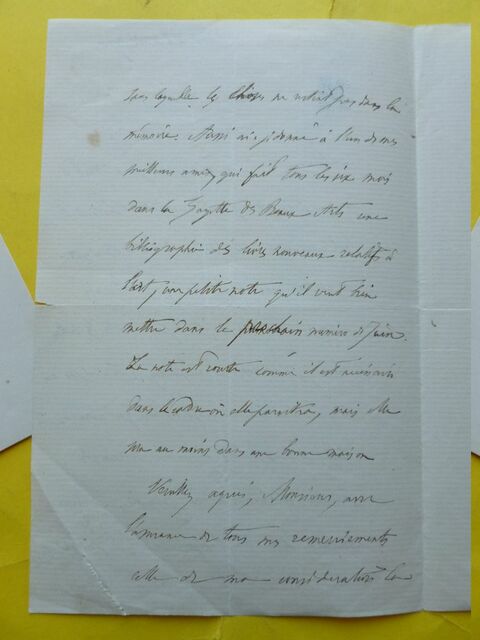 sans laquelle les choses ne restent pas dans la
mémoire. Aussi ai-je donné à l'un de mes
meilleurs amis, qui fait tous les six mois
dans la Gazette des Beaux Arts une
bibliographie des livres nouveaux relatifs à
l'art, une petite note qu'il veut bien
mettre dans le prochain numéro de Juin.
La note est courte comme il est nécessaire
dans le cadre où elle paraîtra, mais elle
sera au moins dans une bonne maison
Veuillez agréer, Monsieur, avec
l'assurance de tous mes remerciements
celle de ma considération la